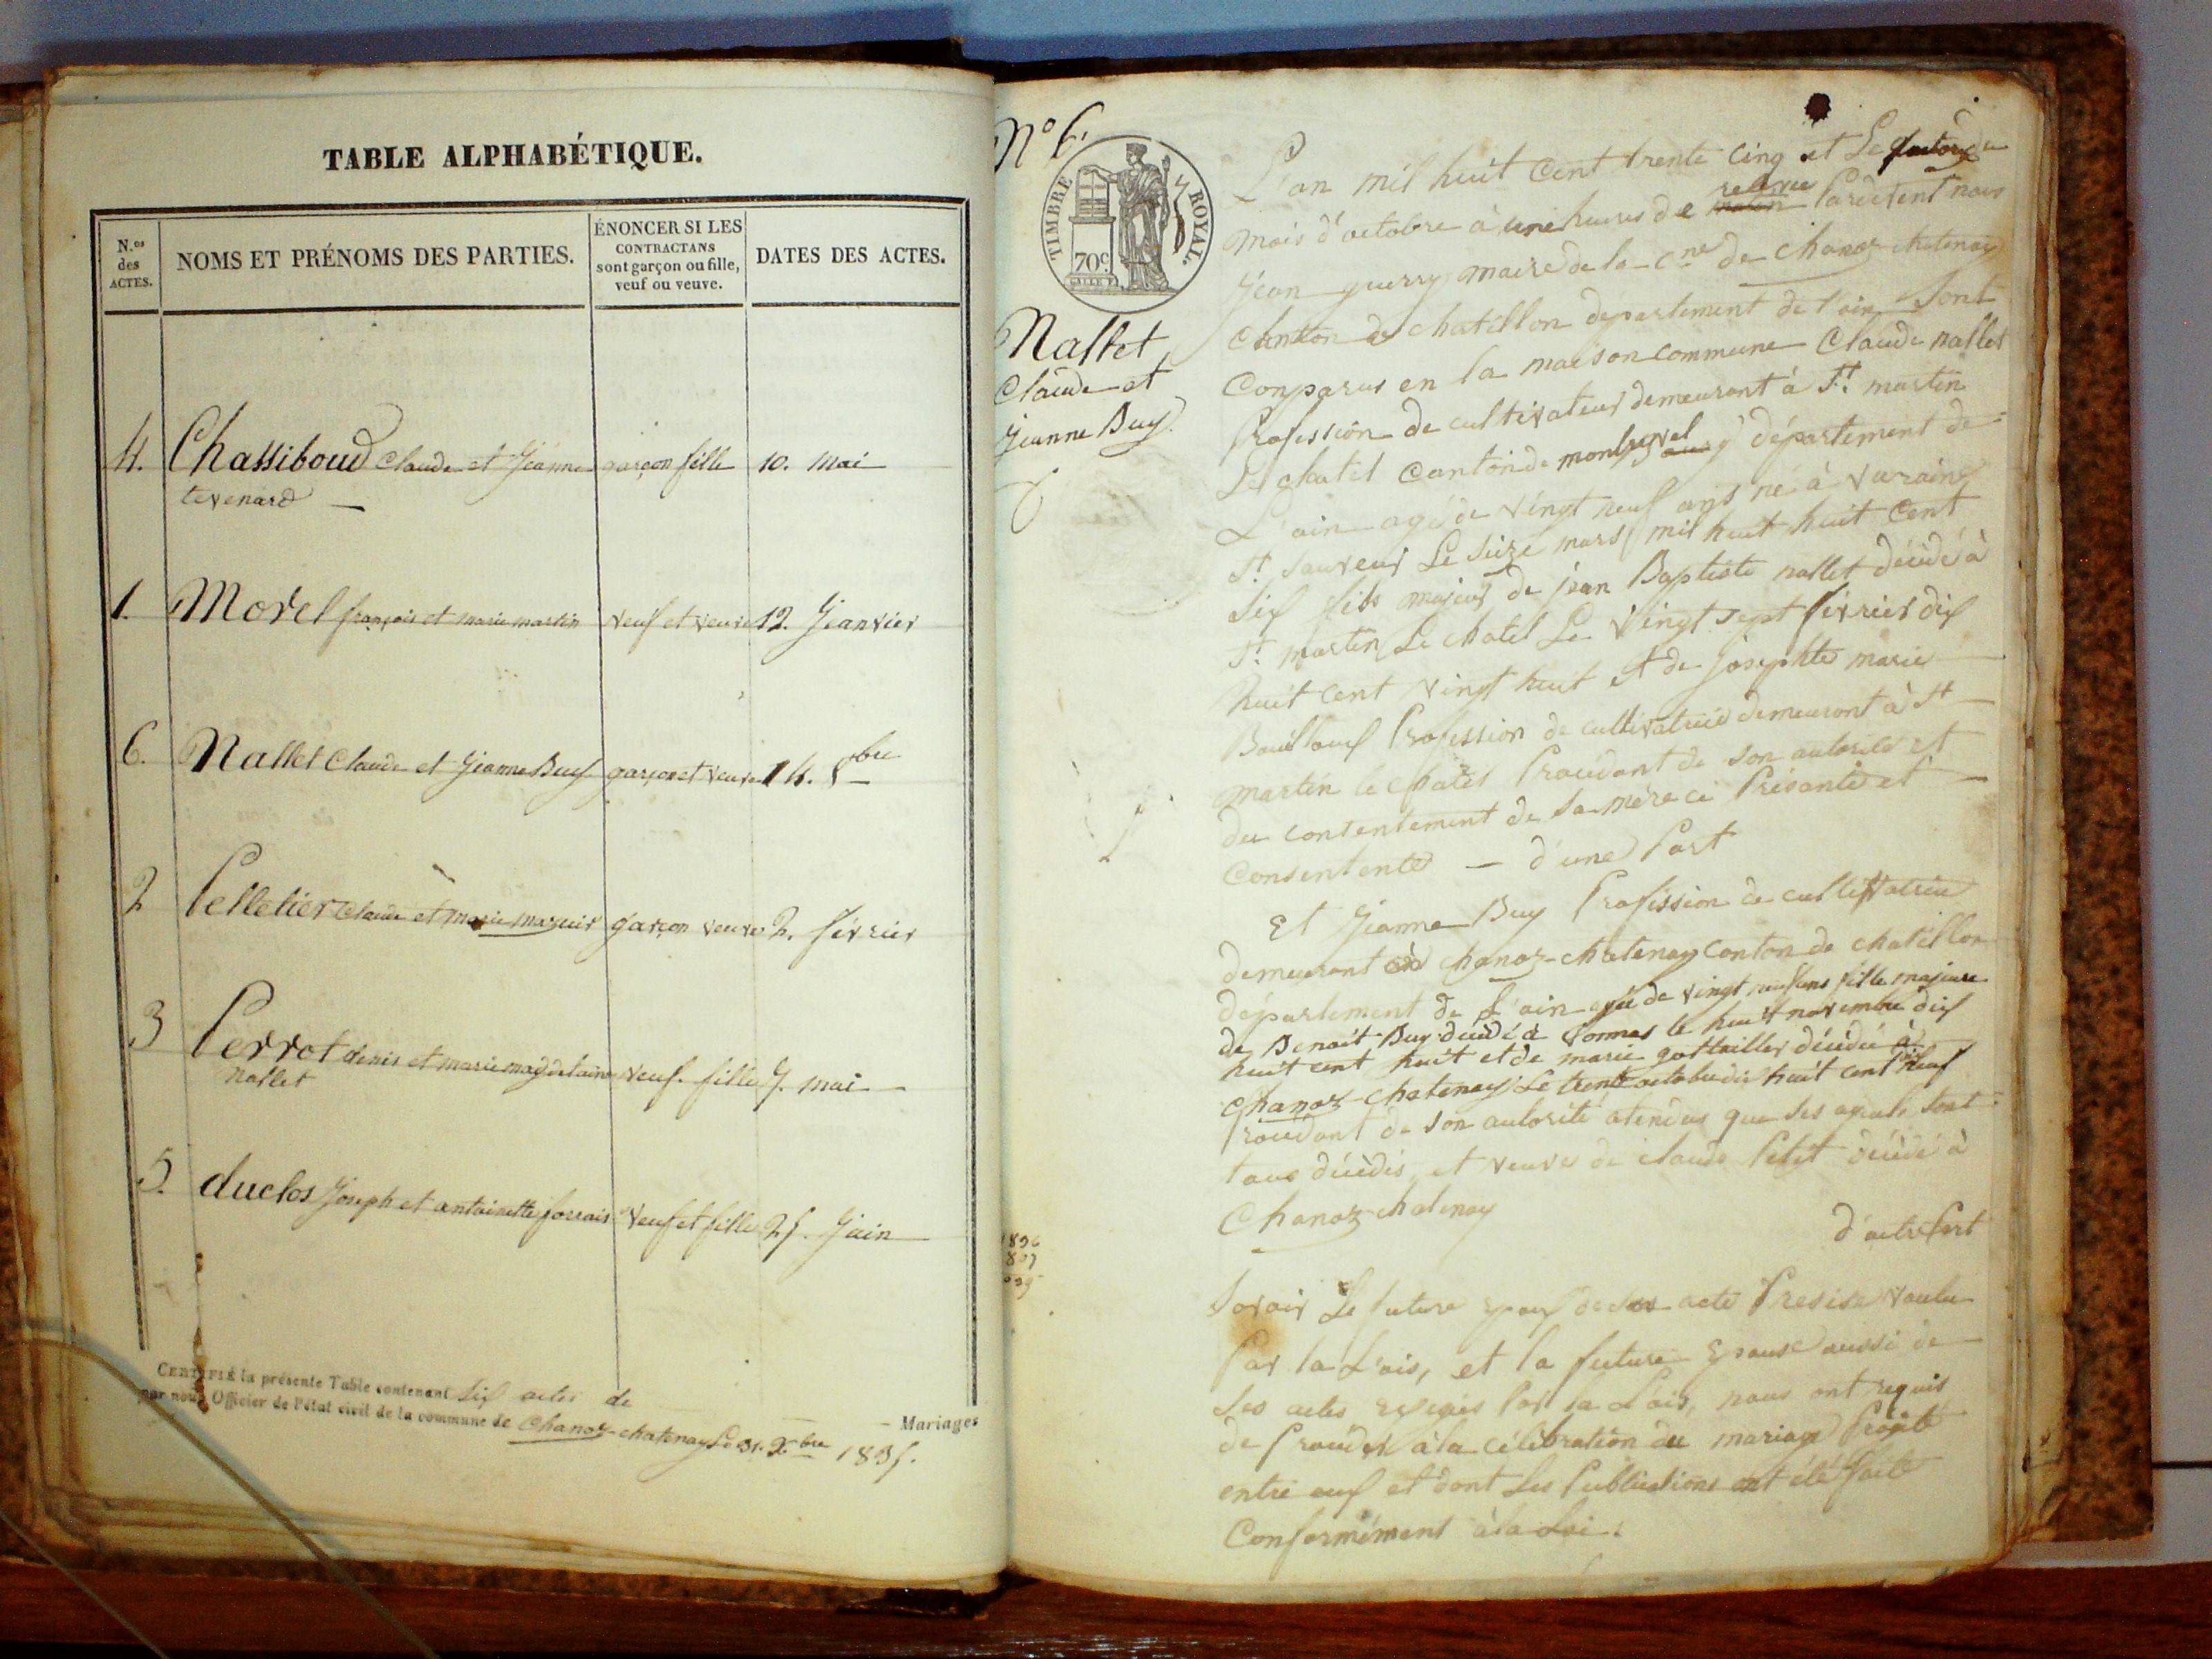 TABLE ALPHABÉTIQUE.
N.os des ACTES.
NOMS ET PRÉNOMS DES PARTIES.
ÉNONCER SI LES CONTRACTANS sont garçon ou fille, veuf ou veuve.
DATES DES ACTES.
4. Chassiboud Claude et Jeanne garçon fille 10. mai
tevenard
1. Morel françois et marie martin veuf et veuve 12. Janvier
6. Nallet Claude et Jeanne Buy garçon et veuve 14. 8bre
2 Pelletier Claude et marie garçon veuve 2. février
3 Perrot denis et marie magdelaine veuf. fille 7. mai
Nallet
5. duclos Joseph et antoinette veuf et fille 25. Juin
CERTIFIÉ la présente Table contenant Six actes de Mariages
par nous Officier de l'état civil de la commune de Chanoz-chatenay Le 31. Xbre 1835.
N° 6.
TIMBRE ROYAL.
70c
Nallet
Claude et
Jeanne Buy
L'an mil huit Cent trente cinq et Le quatorze
mois d'octobre à une heures de matin relevée Pardevent nous
Jean guerry maire de la Cne de Chanoz chatenay
Canton de chatillon département de l'ain Sont
Comparus en la maison commune Claude nallet
Profession de cultivateur demeurant à St. martin
Le chatel Canton de montrevel département de
L'ain agé de vingt neuf ans né à varaine
St. Sauveur Le Seize mars mil huit huit Cent
Six fils majeur de jean Baptiste nallet décédé à
St. martin Le chatel Le Vingt Sept février dix
huit cent vingt huit et de Josephte marie
Profession de cultivatrice demeurant à St
martin le chatel Procédant de son autorité et
du contentement de Sa mère ci Présante et
Consentente — d'une Part
Et Jeanne Buy Profission de cultivatrice
demeurant à Chanoz-chatenay Canton de chatillon
département de L'ain agée de vingt neuf ans fille majeure
de Benoit Buy décédé à vonnas le huit novembre dix
huit cent huit et de marie décédée à
Chanoz-chatenay Le trente octobre dix huit cent neuf
Procédant de Son autorité atendus que Ses ayeuls Sont
tous décédés, et veuve de claude Petit décédé à
Chanoz-chatenay
d'autre Part
1836
Savoir Le future de Son acte voulu
Par la Lois, et la future Epouse aussi de
Ses actes Par la Lois, nous ont requis
de Procéder à la célébration du mariage Projeté
entre eux et dont Les Publications ont été faite
Conformément à la Loi.